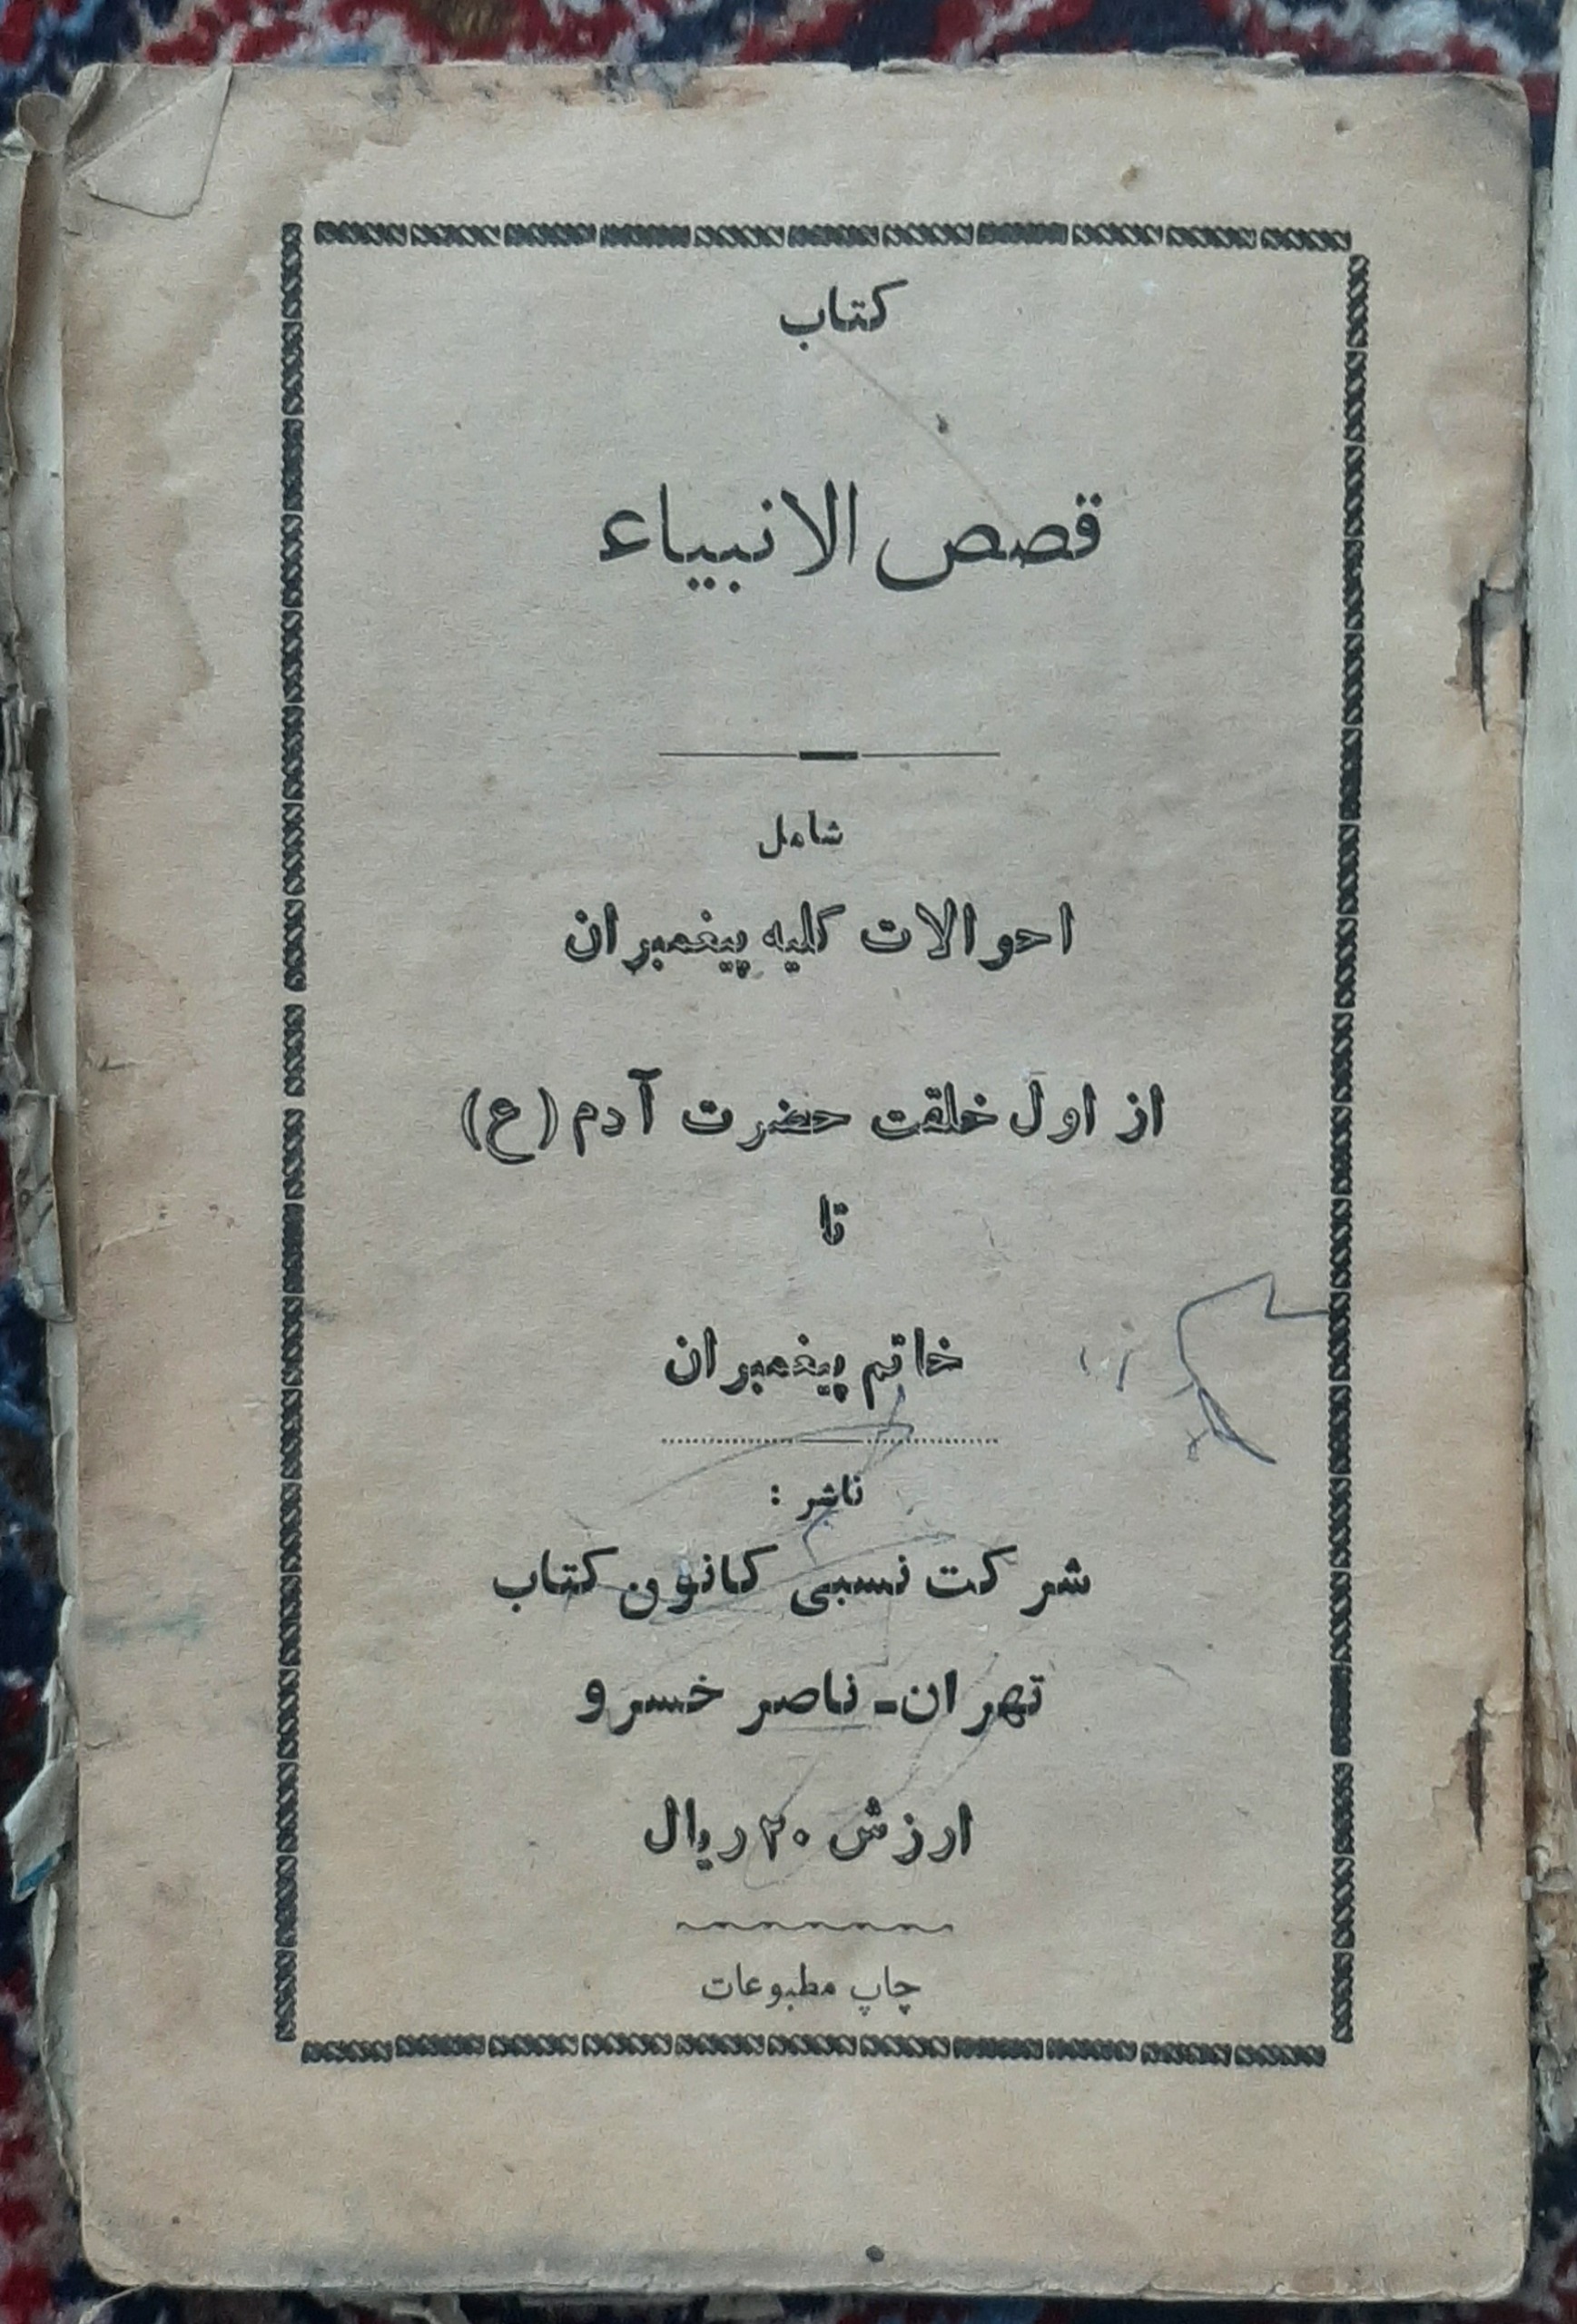 کتاب
قصص الانبیاء
شامل
احوالات کلیه پیغمبران
از اول خلقت حضرت آدم (ع)
تا
خاتم پیغمبران
ناشر :
شرکت نسبی کانون کتاب
تهران - ناصر خسرو
ارزش ۲۰ ریال
چاپ مطبوعات